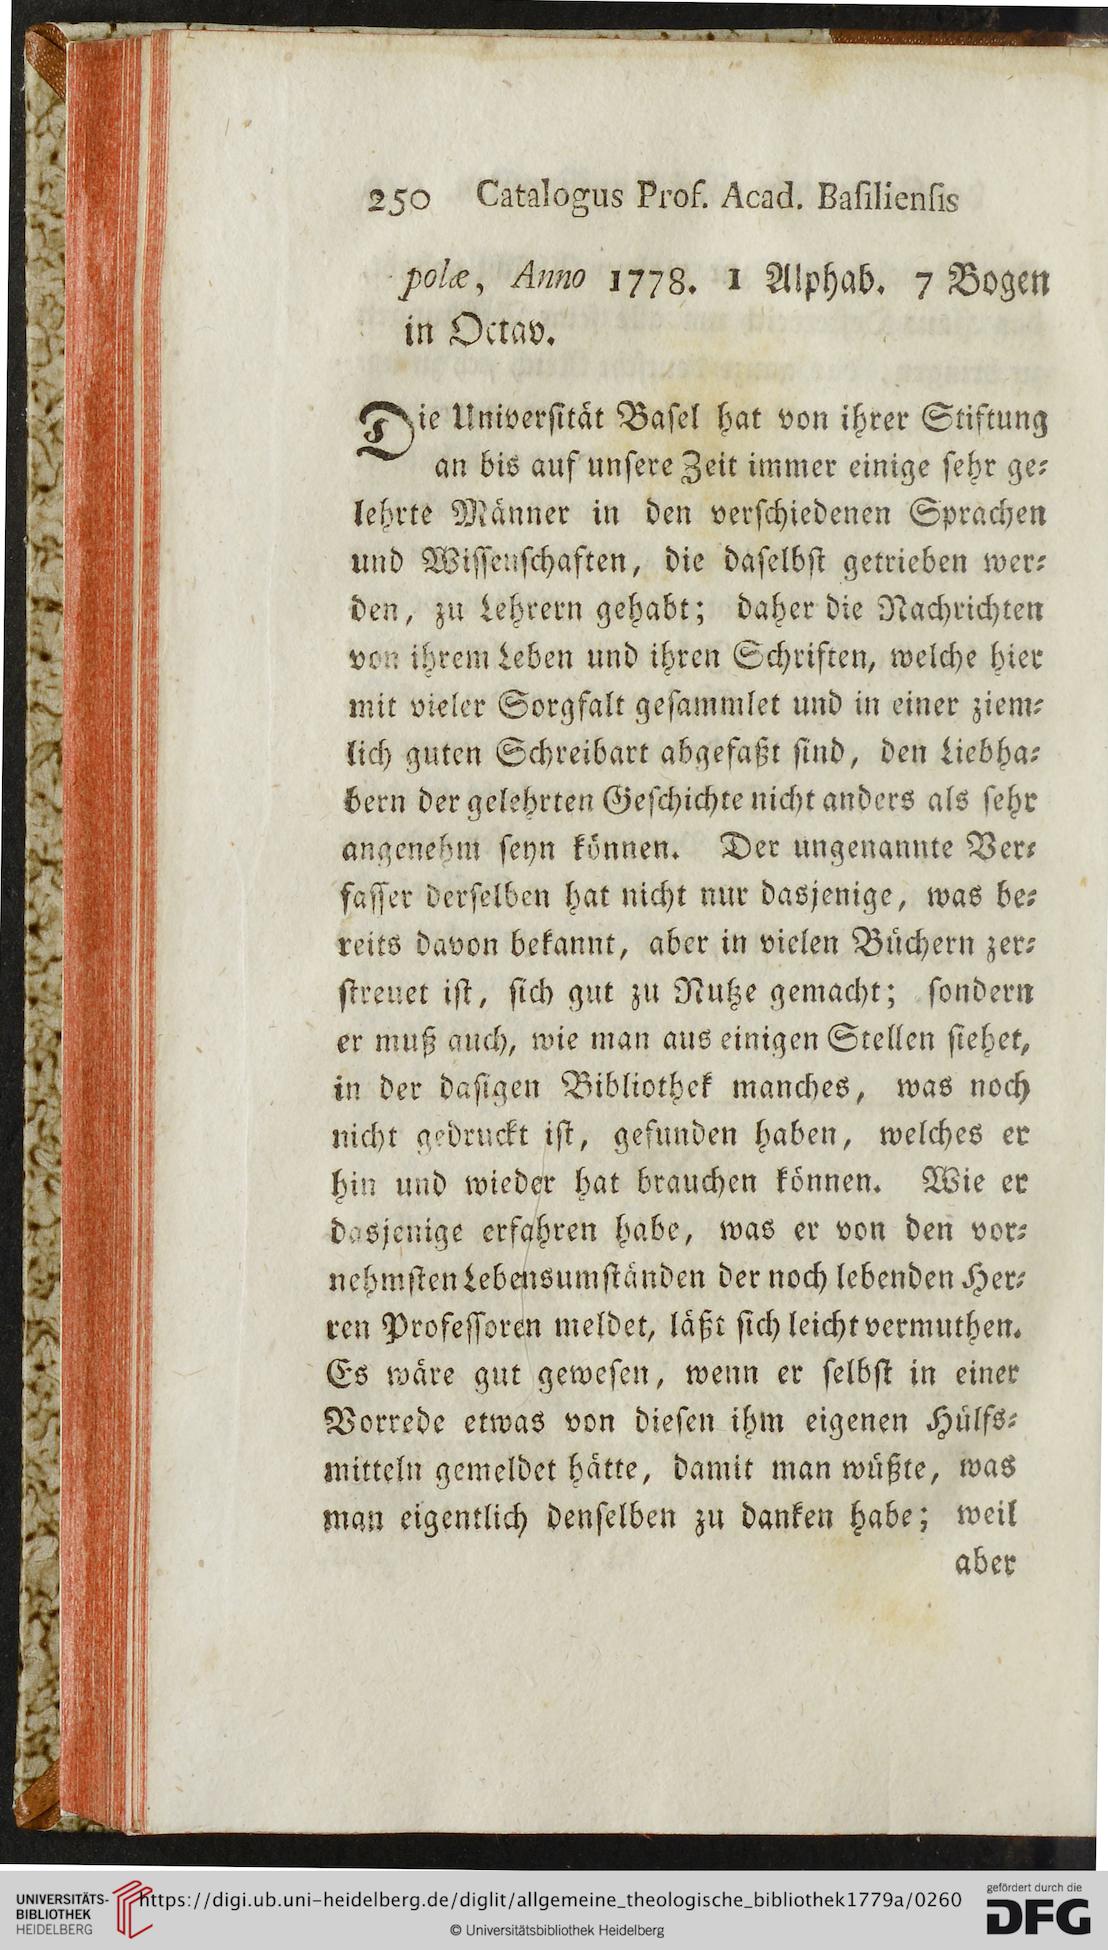 250 Catalogus Prof. Acad. Baſilienſis
polæ, Anno 1778. 1 Alphab. 7 Bogen
in Octav.
Die Univerſität Baſel hat von ihrer Stiftung
an bis auf unſere Zeit immer einige ſehr ge⸗
lehrte Männer in den verſchiedenen Sprachen
und Wiſſenſchaften, die daſelbſt getrieben wer⸗
den, zu Lehrern gehabt; daher die Nachrichten
von ihrem Leben und ihren Schriften, welche hier
mit vieler Sorgfalt geſammlet und in einer ziem⸗
lich guten Schreibart abgefaßt ſind, den Liebha⸗
bern der gelehrten Geſchichte nicht anders als ſehr
angenehm ſeyn können. Der ungenannte Ver⸗
faſſer derſelben hat nicht nur dasjenige, was be⸗
reits davon bekannt, aber in vielen Büchern zer⸗
ſtreuet iſt, ſich gut zu Nutze gemacht; ſondern
er muß auch, wie man aus einigen Stellen ſiehet,
in der daſigen Bibliothek manches, was noch
nicht gedruckt iſt, gefunden haben, welches er
hin und wieder hat brauchen können. Wie er
dasjenige erfahren habe, was er von den vor⸗
nehmſten Lebensumſtänden der noch lebenden Her⸗
ren Profeſſoren meldet, läßt ſich leicht vermuthen.
Es wäre gut geweſen, wenn er ſelbſt in einer
Vorrede etwas von dieſen ihm eigenen Hülfs⸗
mitteln gemeldet hätte, damit man wüßte, was
man eigentlich denſelben zu danken habe; weil
aber
UNIVERSITÄTS-
BIBLIOTHEK
HEIDELBERG
https://digi.ub.uni-heidelberg.de/diglit/allgemeine_theologische_bibliothek1779a/0260
© Universitätsbibliothek Heidelberg
gefördert durch die
DFG